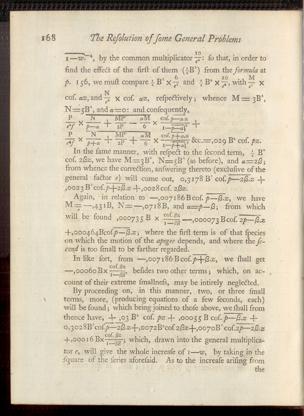 168 The Resolution of some General Problems
1—w.|⁻⁴, by the common multiplicator 10/e²: so that, in order to
find the effect of the first of them (½B') from the formula at
p. 156, we must compare ½ B' × 6/e² and ½ B' × 10/e², with M/e² ×
cos. αz, and N/e² × cos. αz, respectively; whence M = 3B',
N = 5B', and α=0: and consequently,
In the same manner, with respect to the second term, ½ B'
cos. 2βz, we have M=3B', N=5B' (as before), and α=2β;
from whence the correction, answering thereto (exclusive of the
general factor e) will come out, 0,3178 B' cos. p—2β.z +
,0023 B' cos. p+2β.z + ,0028 cos. 2βz.
Again, in relation to —,007186 B cos. p—β.z, we have
M = —,431B, N = —,0718B, and α=p—β; from which
will be found ,000735 B × cos. βz/1—ββ —,000073 B cos. 2p—β.z
+,000464 B cos p—β.z; where the first term is of that species
on which the motion of the apogee depends, and where the se-
cond is too small to be farther regarded.
In like sort, from —,007186 B cos. p+β.z, we shall get
—,00060 B × cos. βz/1—ββ, besides two other terms; which, on ac-
count of their extreme smallness, may be intirely neglected.
By proceeding on, in this manner, two, or three small
terms, more, (producing equations of a few seconds, each)
will be found; which being joined to those above, we shall from
thence have, + ,03 B' cos. pz + ,00055 B cos. p—β.z +
0,3028 B' cos. p—2β.z +,0072 B' cos 2βz +,0070 B' cos. 2p—2β.z
+,00016 B × cos. βz/1—ββ; which, drawn into the general multiplica-
tor e, will give the whole increase of 1—w, by taking in the
square of the series aforesaid. As to the increase arising from
the